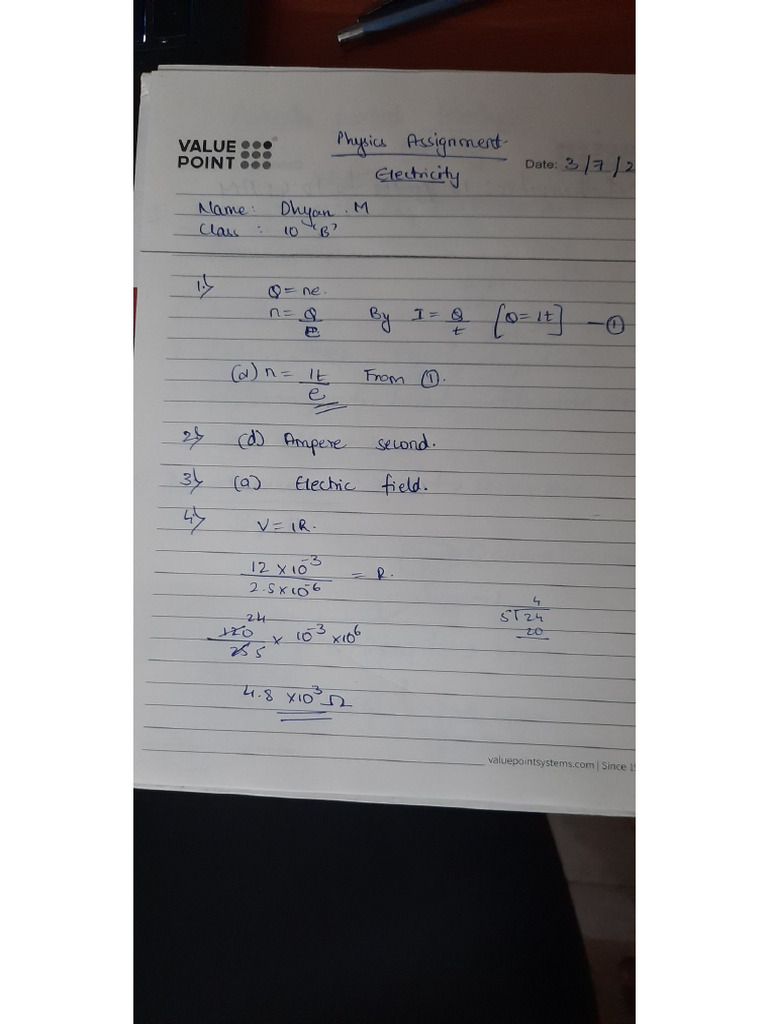 VALUE
POINT
Physics Assignment.
Electricity
Date: 3/7/2
Name: Dhyan . M
Class : 10 'B'
1.> Q = ne.
n = Q/e By I = Q/t [Q = It] — ①
(d) n = It/e From ①.
2> (d) Ampere second.
3> (a) Electric field.
4> V = IR.
12 × 10⁻³ / 2.5 × 10⁻⁶ = R.
120 24 / 25 5 × 10⁻³ × 10⁶
4
5 24
20
4.8 × 10³ Ω
valuepointsystems.com | Since 19